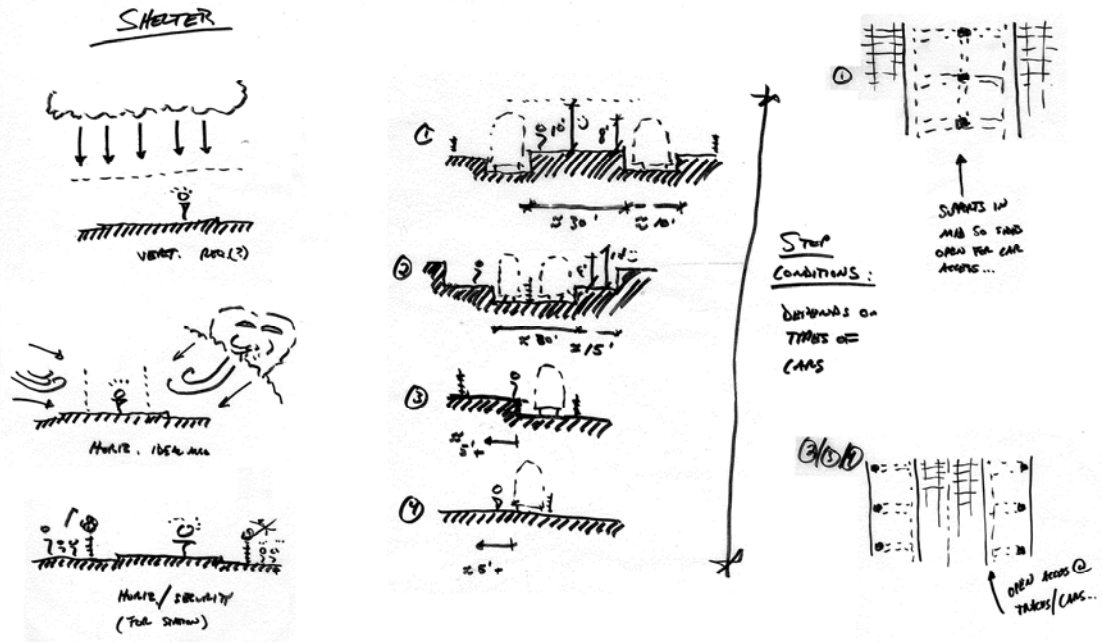 SHELTER
VERT. REQ.(?)
HORIZ. IDEAL
HORIZ/SECURITY
(FOR STATION)
1
10'
8'
≈ 30'
≈ 10'
2
8'
≈ 30'
≈ 15'
3
≈
5'+
4
≈ 5'+
STEP
CONDITIONS:
DEPENDS ON
TYPES OF
CARS
1
SUPPORTS IN
MID SO SIDES
OPEN FOR CAR
ACCESS...
2/3/4
OPEN ACCESS @
TRACKS/CARS...